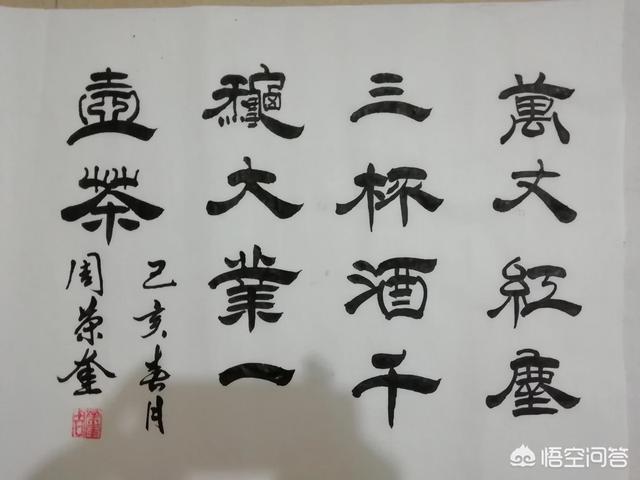 萬丈紅塵
三杯酒千
龝大業一
壺茶
己亥春月
周荣奎
悟空问答